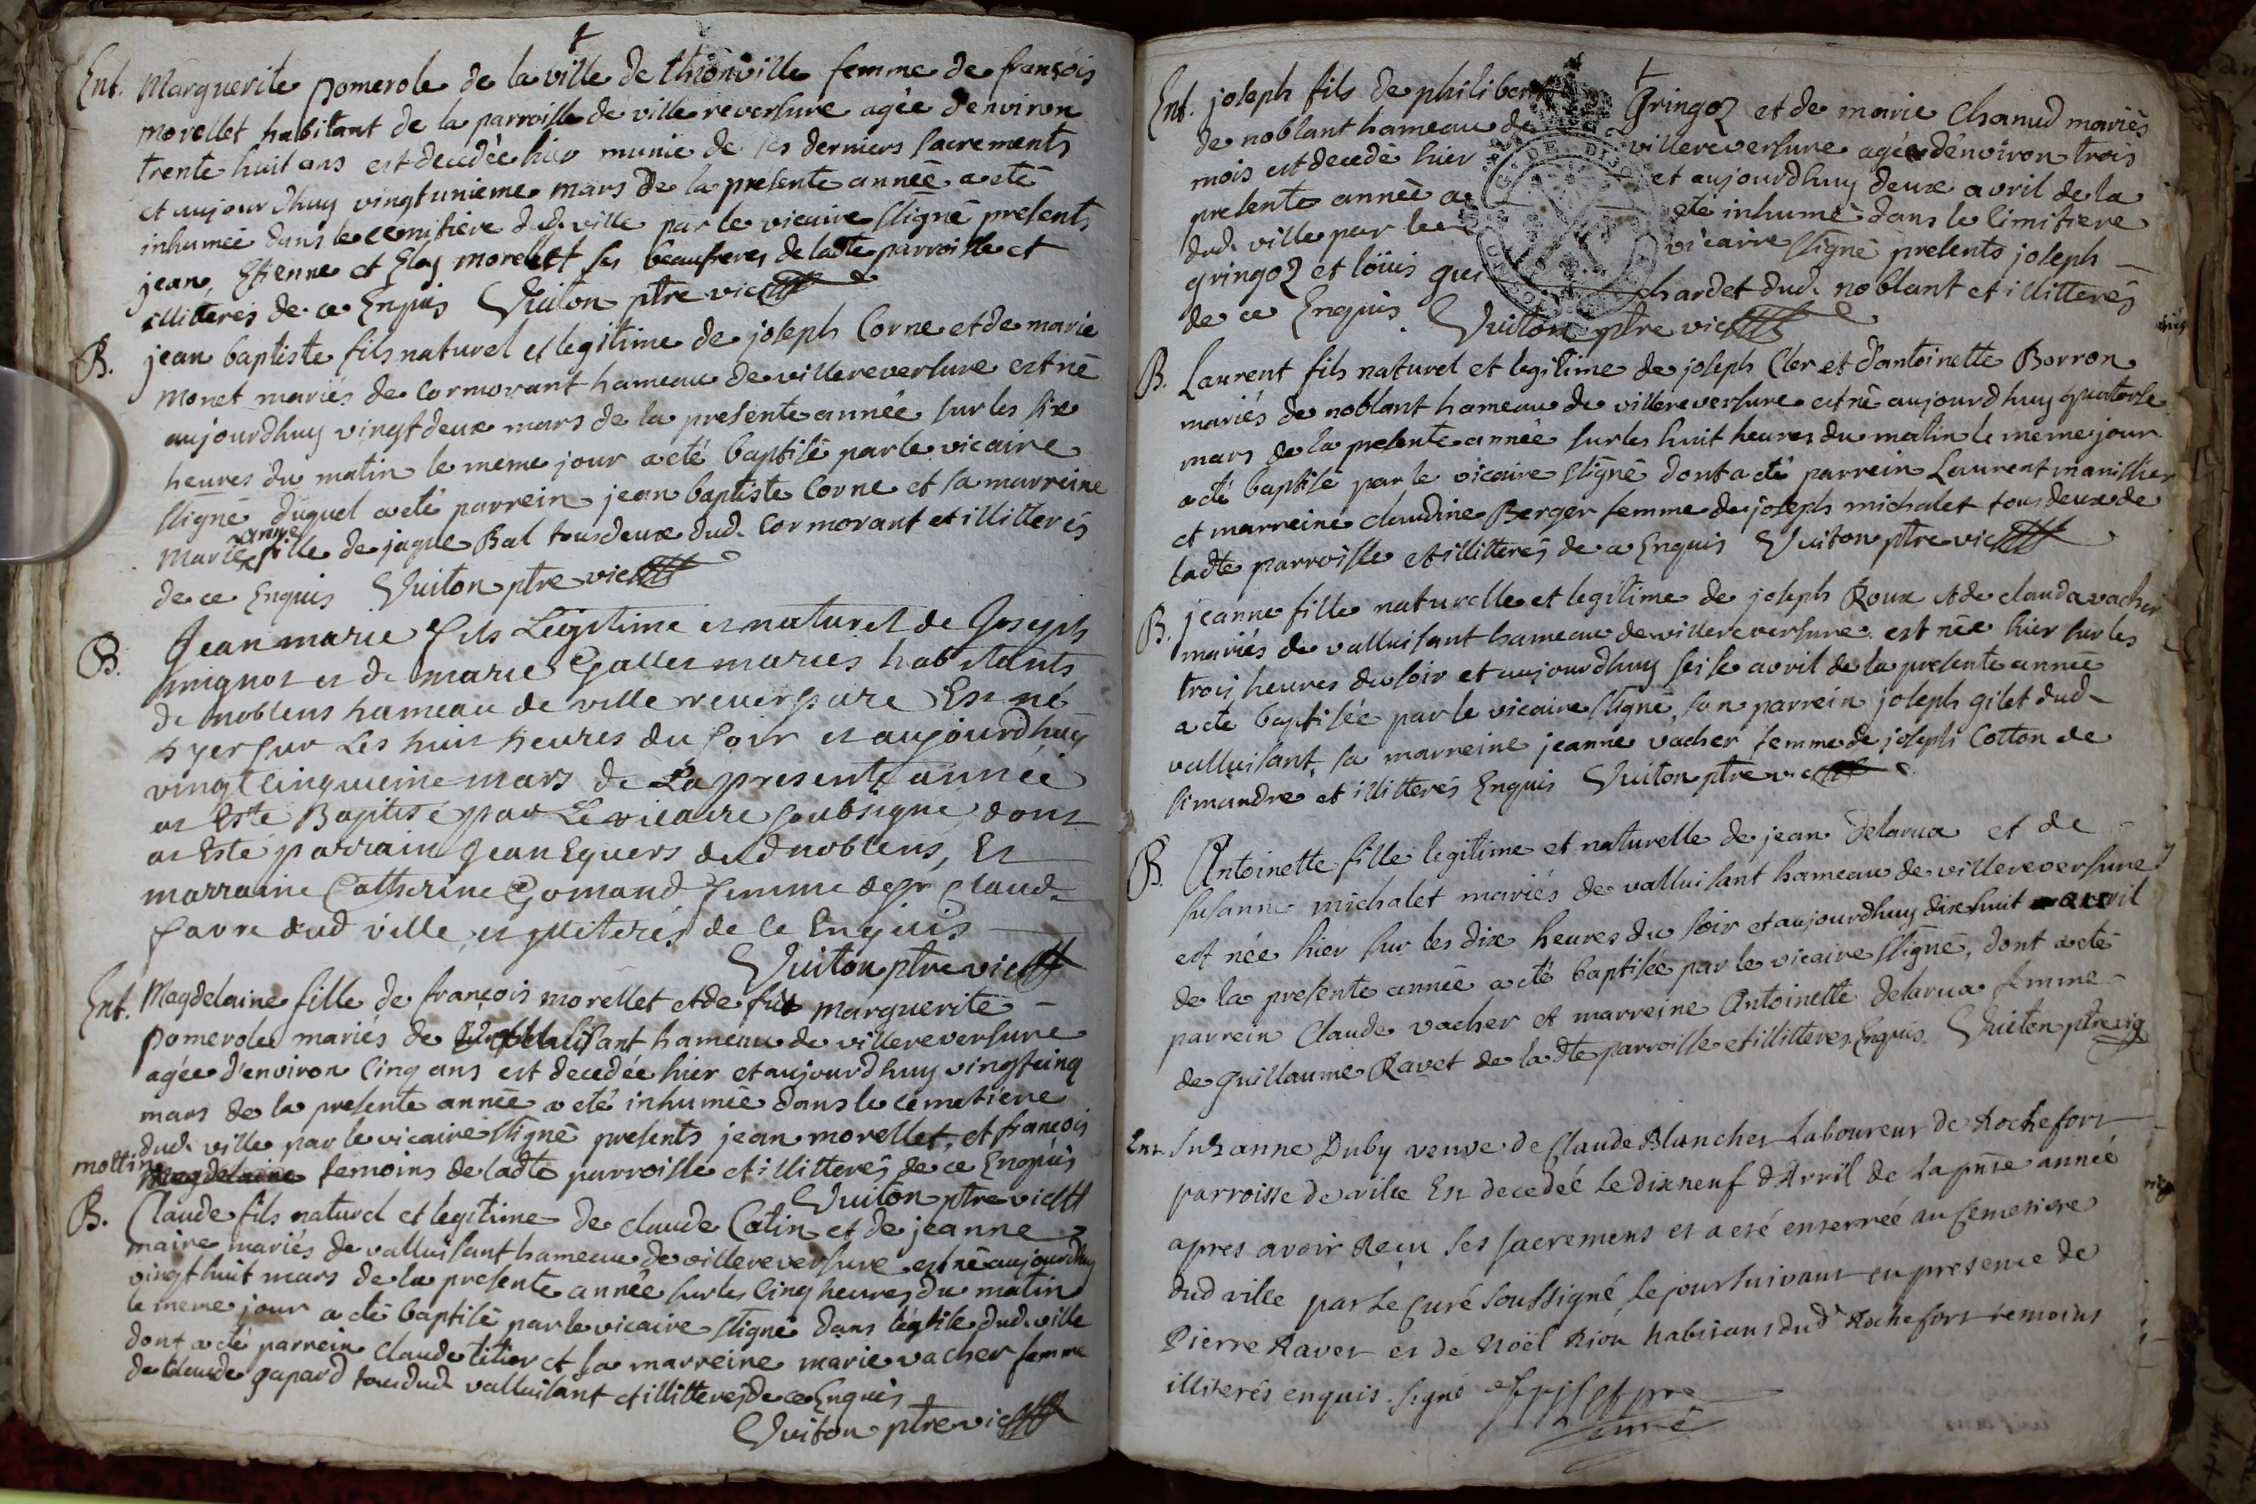 Ent. Marguerite pomerole de la ville de thionville femme de françois
morellet habitant de la parroisse de villereversure agée denviron
trente huit ans est decedée hier munie de ses derniers sacrements
et aujourdhuy vingtunieme mars de la presente année a eté
inhumée dans le cemitiere dud. ville par le vicaire ssigné presents
jean, Etienne et Eloy morellet ses beaufreres de ladte parroisse et
illitterés de ce Enquis Vuiton ptre vic
B. jean baptiste fils naturel et legitime de joseph Corne et de marie
monet mariés de cormorant hameau de villereversure est né
aujourdhuy vingt deux mars de la presente année sur les six
heures du matin le meme jour a eté baptisé par le vicaire
ssigné duquel a eté parrein jean baptiste Corne et sa marreine
marie anne fille de jaque Bal tous deux dud. cormorant et illitterés
de ce Enquis Vuiton ptre vic
B. Jean marie fils Legitime et naturel de Joseph
mignot et de marie Gallet maries habitants
de noblens hameau de ville reversure Est né
hyer sur Les huit heures du soir et aujourdhuy
vingt cinquieme mars de La presente année
at Esté Baptisé par Le vicaire soubsigné dont
at Esté parrain Jean Equers dud noblens, Et
marraine Catherine Gomand femme de Claud
favre dud ville et illiterés de Ce Enquis
Vuiton ptre vic
Ent. Magdelaine fille de françois morellet et de feue marguerite
Pomerole mariés de valluisant hameau de villereversure
agée d'environ Cinq ans est decedée hier et aujourdhuy vingt cinq
mars de la presente année a eté inhumée dans le cemetiere
dud. ville par le vicaire ssigné presents jean morellet, et françois
mottin Magdelaine temoins de ladte parroisse et illitterés de ce Enquis
Vuiton ptre vic
B. Claude fils naturel et legitime de claude Catin et de jeanne
maire mariés de valluisant hameau de villereversure est né aujourdhuy
vingt huit mars de la presente année sur les Cinq heures du matin
le meme jour a eté baptisé par le vicaire ssigné dans l'églisle dud. ville
dont a eté parrein Claude titier et la marreine marie vacher femme
de claude gapard tous dud. valluisant et illitterés de ce Enquis
Vuiton ptre vic
Ent. joseph fils de philibert Gringoz et de marie Chanud mariés
de noblant hameau de villereversure agée d'environ trois
mois est decedé hier et aujourdhuy deux avril de la
presente année a eté inhumé dans le Cimitiere
dud. ville par le vicaire ssigné presents joseph
gringoz et loüis guichardet dud. noblant et illitterés
de ce Enquis. Vuiton ptre vic
B. Laurent fils naturel et legitime de joseph Cler et d'antoinette Borron
mariés de noblant hameau de villereversure est né aujourdhuy quatorse
mars de la presente année sur les huit heures du matin le meme jour
a eté baptisé par le vicaire ssigné dont a eté parrein Laurent manissier
et marreine claudine Berger femme de joseph michalet tous deux de
ladte parroisse et illitterés de ce Enquis Vuiton ptre vic
B. jeanne fille naturelle et legitime de joseph Roux et de clauda vacher
mariés de valluisant hameau de villereversure est née hier sur les
trois heures du soir et aujourdhuy seise avril de la presente année
a eté baptisée par le vicaire ssigné, son parrein joseph gilet dud.
valluisant, sa marreine jeanne vacher femme de joseph Cotton de
simandre et illitterés Enquis Vuiton ptre vic
B. Antoinette fille legitime et naturelle de jean Delarua et de
susanne michalet mariés de valluisant hameau de villereversure
est née hier sur les dix heures du soir et aujourdhuy dix huit avril
de la presente année a eté baptisée par le vicaire ssigné, dont a eté
parrein Claude vacher et marreine Antoinette Delarua femme
de guillaume Ravet de la dte parroisse et illitteres Enquis. Vuiton ptre vic
Ent. Suzanne Duby veuve de Claude Blanchet Laboureur de Rochefort
parroisse de ville Est decedée Le dixneuf d'Avril de La pnte année
apres avoir Reçu ses sacremens et a eté enterrée au semetiere
dud ville par Le Curé soussigné, le jour suivant en presence de
Pierre Ravet et de Noël Rion habitans dud. Rochefort temoins
illiterés enquis. signé
curé